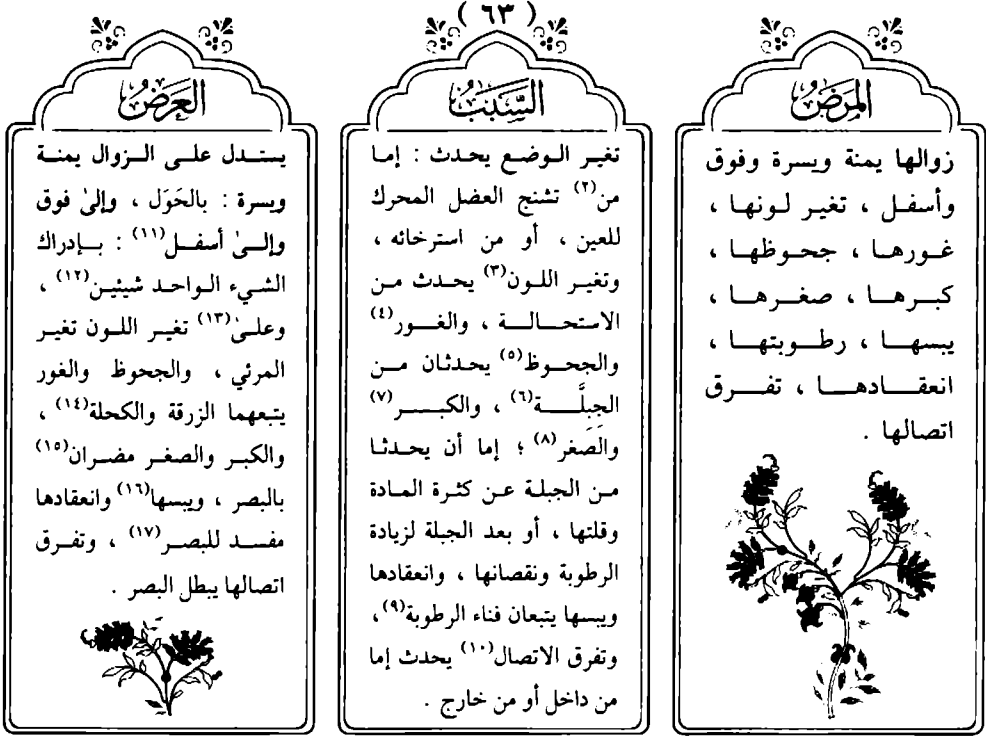 ( ٦٣ )
المَرَضُ
زوالها يمنة ويسرة وفوق
وأسفل ، تغير لونها ،
غورها ، جحوظها ،
كبرها ، صغرها ،
يبسها ، رطوبتها ،
انعقادها ، تفرق
اتصالها .
السَّبَبُ
تغير الوضع يحدث : إما
من(٢) تشنج العضل المحرك
للعين ، أو من استرخائه ،
وتغير اللون(٣) يحدث من
الاستحالة ، والغور(٤)
والجحوظ(٥) يحدثان من
الجِبِلَّة(٦) ، والكبر(٧)
والصِغر(٨) ؛ إما أن يحدثا
من الجبلة عن كثرة المادة
وقلتها ، أو بعد الجبلة لزيادة
الرطوبة ونقصانها ، وانعقادها
ويبسها يتبعان فناء الرطوبة(٩)،
وتفرق الاتصال(١٠) يحدث إما
من داخل أو من خارج .
العَرَضُ
يستدل على الزوال يمنة
ويسرة : بالحَوَل ، وإلىٰ فوق
وإلىٰ أسفل(١١) : بإدراك
الشيء الواحد شيئين(١٢) ،
وعلىٰ(١٣) تغير اللون تغير
المرئي ، والجحوظ والغور
يتبعهما الزرقة والكحلة(١٤) ،
والكبر والصغر مضران(١٥)
بالبصر ، ويبسها(١٦) وانعقادها
مفسد للبصر(١٧) ، وتفرق
اتصالها يبطل البصر .